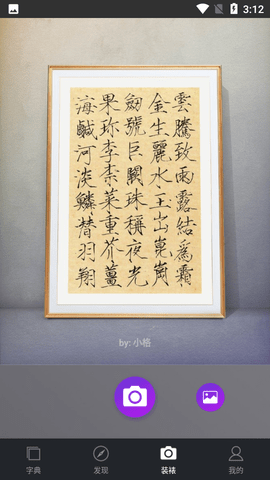 3:12
雲騰致雨露結爲霜
金生麗水玉出崑崗
劒號巨闕珠稱夜光
果珎李柰菜重芥薑
海鹹河淡鱗潛羽翔
by: 小格
字典
发现
装裱
我的